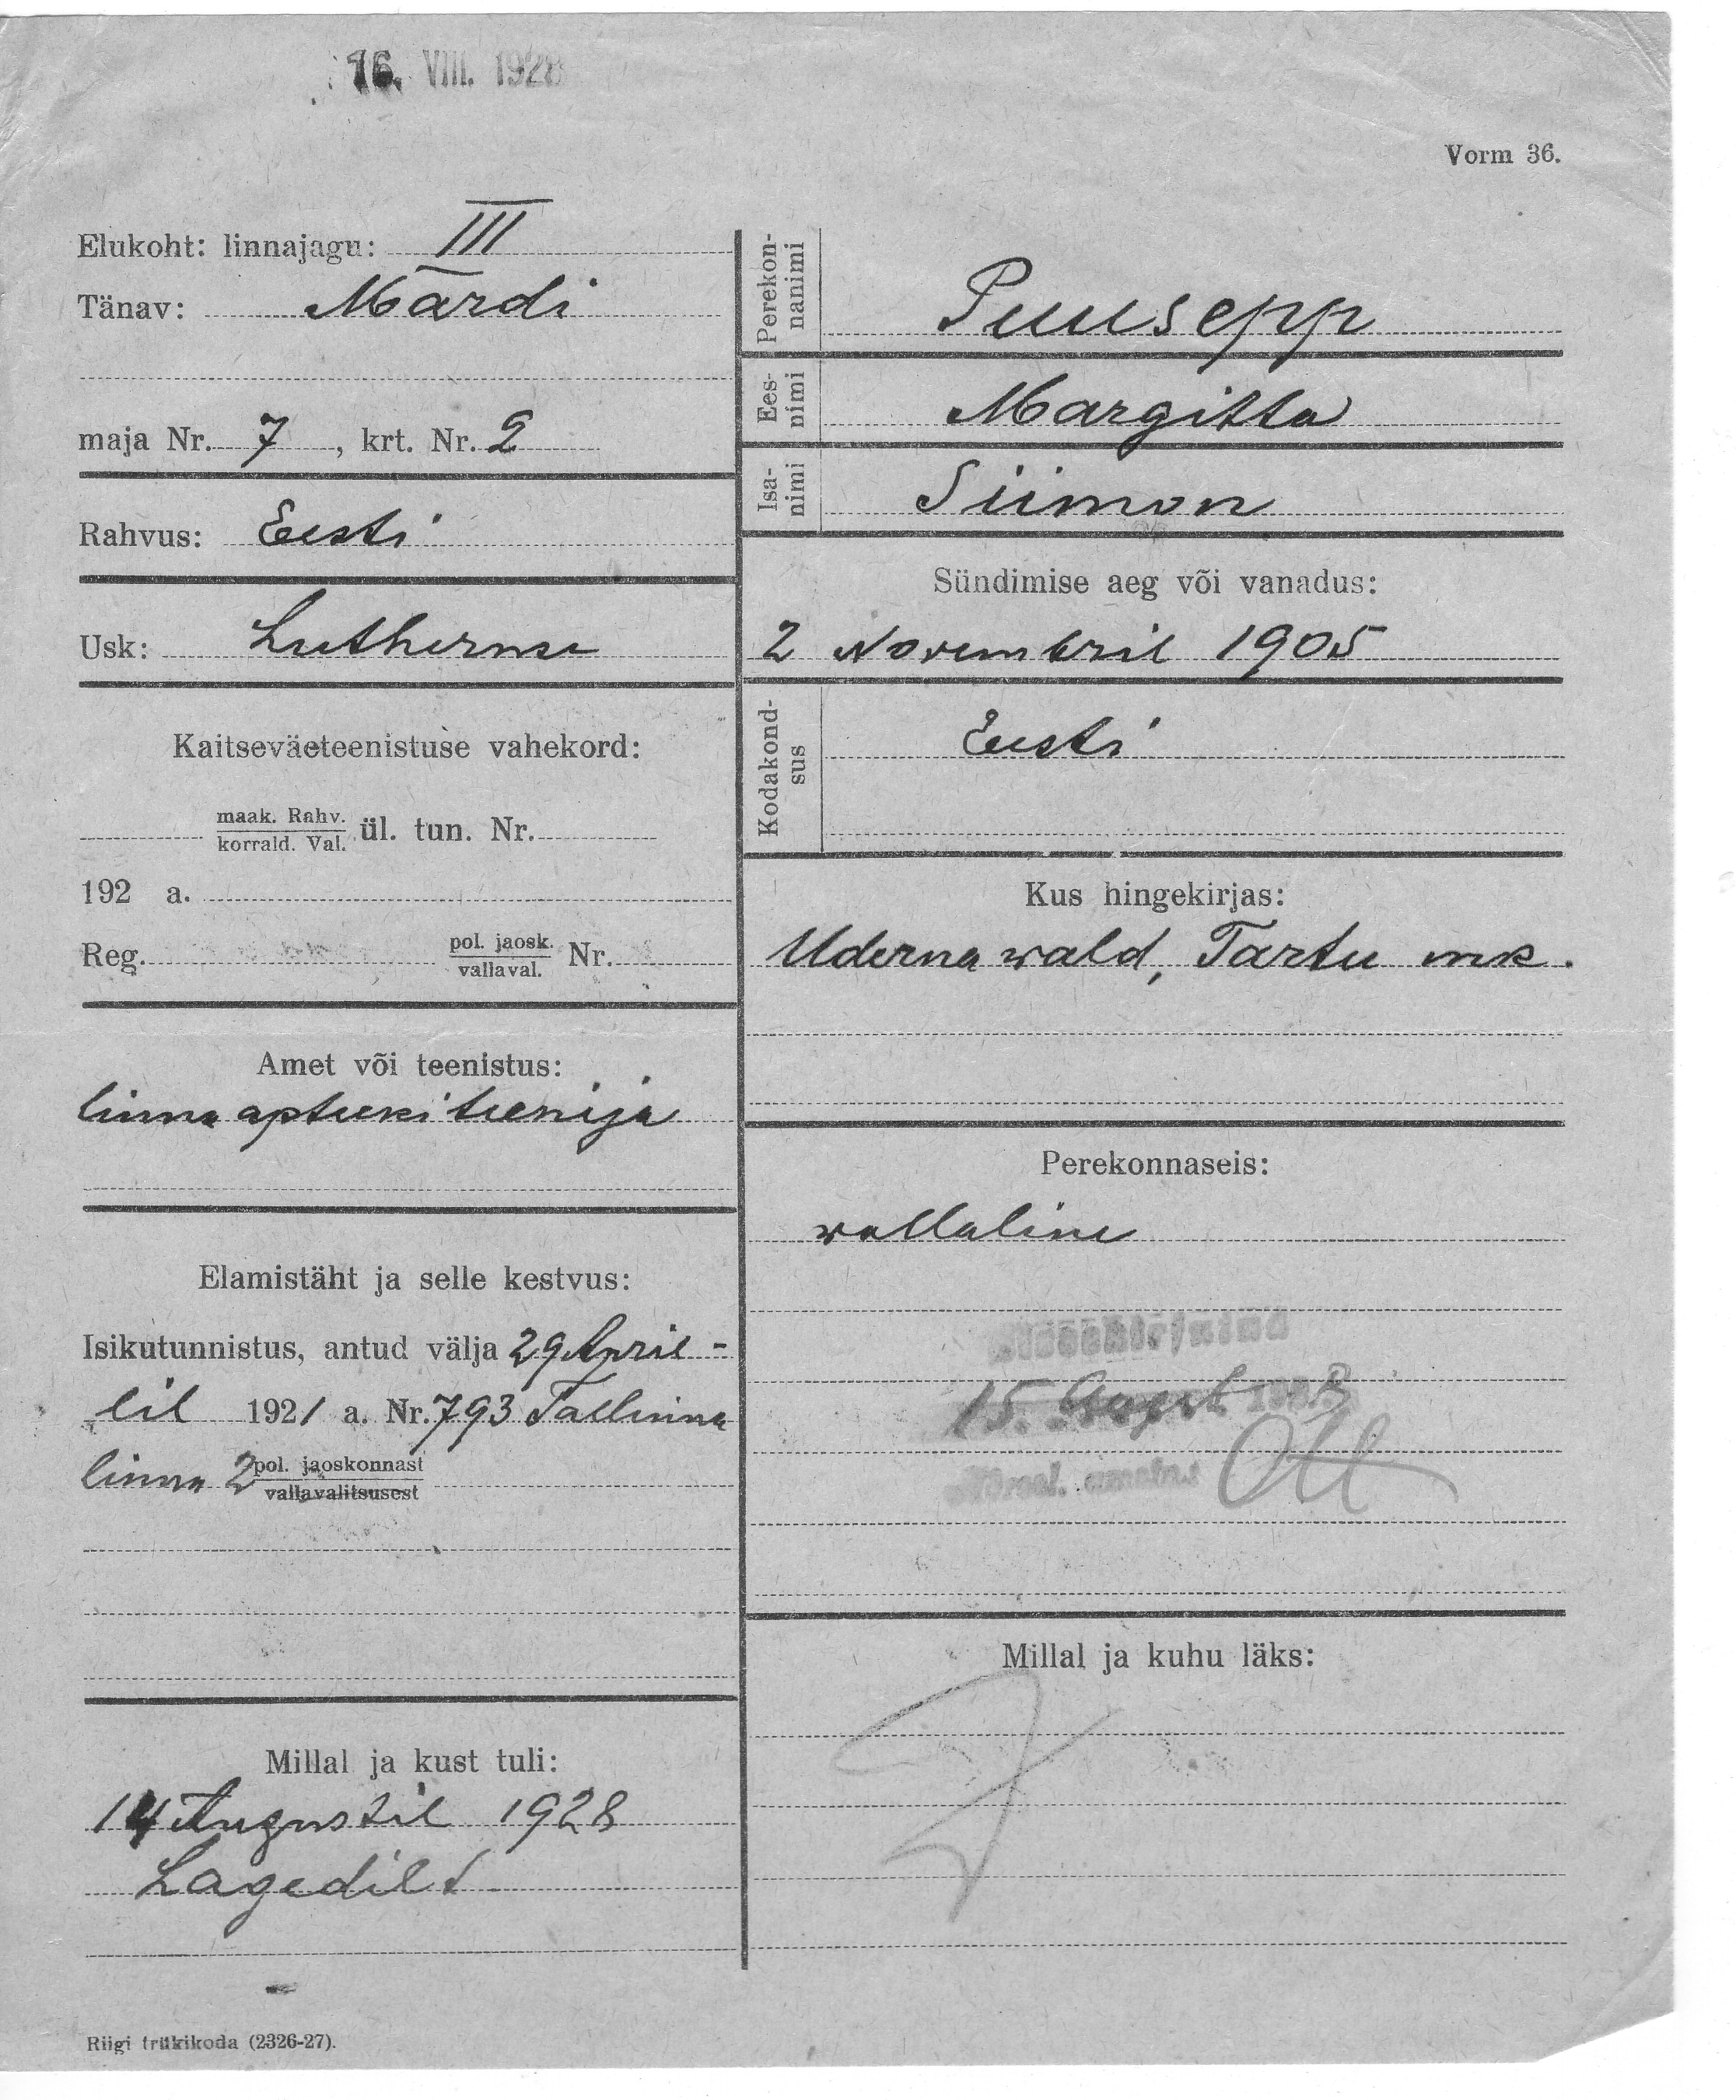 16. VIII. 1928
Vorm 36.
Elukoht: linnajagu: III
Tänav: Mardi
maja Nr. 7, krt. Nr. 2
Rahvus: Eesti
Usk: Lutheruse
Kaitseväeteenistuse vahekord:
maak. Rahv.
korrald. Val.
ül. tun. Nr.
192 a.
Reg. pol. jaosk.
vallaval.
Nr.
Amet või teenistus:
linna apteeki teenija
Elamistäht ja selle kestvus:
Isikutunnistus, antud välja 29 April-
lil 1921 a. Nr. 793 Tallinna
linna 2 pol. jaoskonnast
vallavalitsusest
Millal ja kust tuli:
14 Augustil 1928
Lagedilt
Riigi trükikoda (2326-27).
Perekon-
nanimi
Puusepp
Ees-
nimi
Margitta
Isa-
nimi
Siimon
Sündimise aeg või vanadus:
2 Novembril 1905
Kodakond-
sus
Eesti
Kus hingekirjas:
Uderna wald, Tartu mk.
Perekonnaseis:
wallaline
Sissekirjutud
15. August 1928
Millal ja kuhu läks: